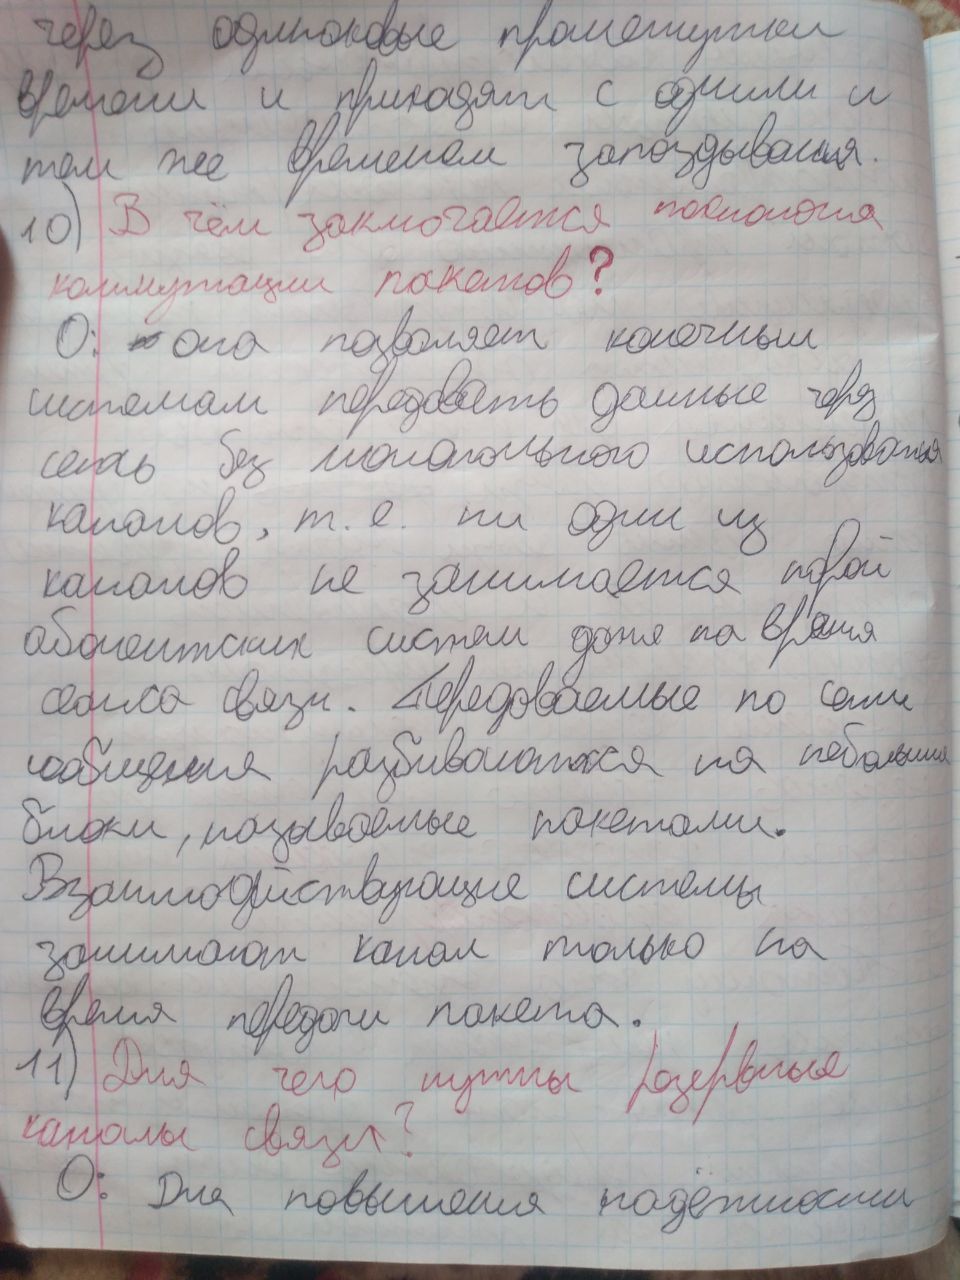 через одинаковые промежутки
времени и приходят с одним и
тем же временем запаздывания.
10) В чём заключается технология
коммутации пакетов?
О: она позволяет конечным
системам передовать данные через
сеть без монопольного использования
каналов, т.е. ни один из
каналов не занимается парой
абонентских систем даже на время
сеанса связи. Передоваемые по сети
сообщения разбиваются на небольшие
блоки, называемые пакетами.
Взаимодействующие системы
занимают канал только на
время передачи пакета.
11) Для чего нужны резервные
каналы связи?
О: Для повышения надёжности